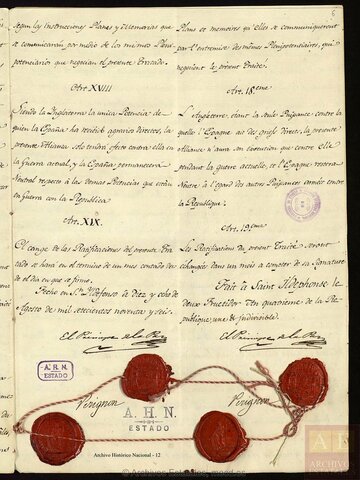 segun las instrucciones Planes y Memorias que
se comunicarán por medio de los mismos Pleni-
potenciarios que negocian el presente Tratado.
Art.º XVIII
Siendo la Inglaterra la unica Potencia de
quien la España ha recibido agravios directos, la
presente Alianza solo tendrá efecto contra ella en
la Guerra actual, y la España permanecerá
Neutral respecto á las demas Potencias que están
en Guerra con la Republica
Art.º XIX.
El cange de las Ratificaciones del presente Tra-
tado se hará en el termino de un mes contado des-
de el dia en que se firme.
Fecho en S.n Ildefonso de Diez y ocho de
Agosto de mil setecientos noventa y seis.
El Principe de la Paz
Perignon
Plans et memoires qu'elles se communiqueront
par l'entremise des mêmes Plenipotentiaires, qui
negocient le présent Traité.
Art. 18.eme
L'Angleterre, étant la seule Puissance contre la
quelle l'Espagne ait des griefs directs, la presente
Alliance n'aura son execution que contre elle
pendant la guerre actuelle, et l'Espagne restera
Neutre à l'égard des autres Puissances armées contre
la Republique.
Art. 19.eme
Les Ratifications du présent Traité seront
échangées dans un mois a compter de sa Signature
Fait à Saint Ildephonse le
Deux Fructidor an quatrieme de la Re-
publique, une & indivisible.
El Principe de la Paz
Perignon
A.H.N.
ESTADO
A.H.N.
ESTADO
Archivo Histórico Nacional - 12